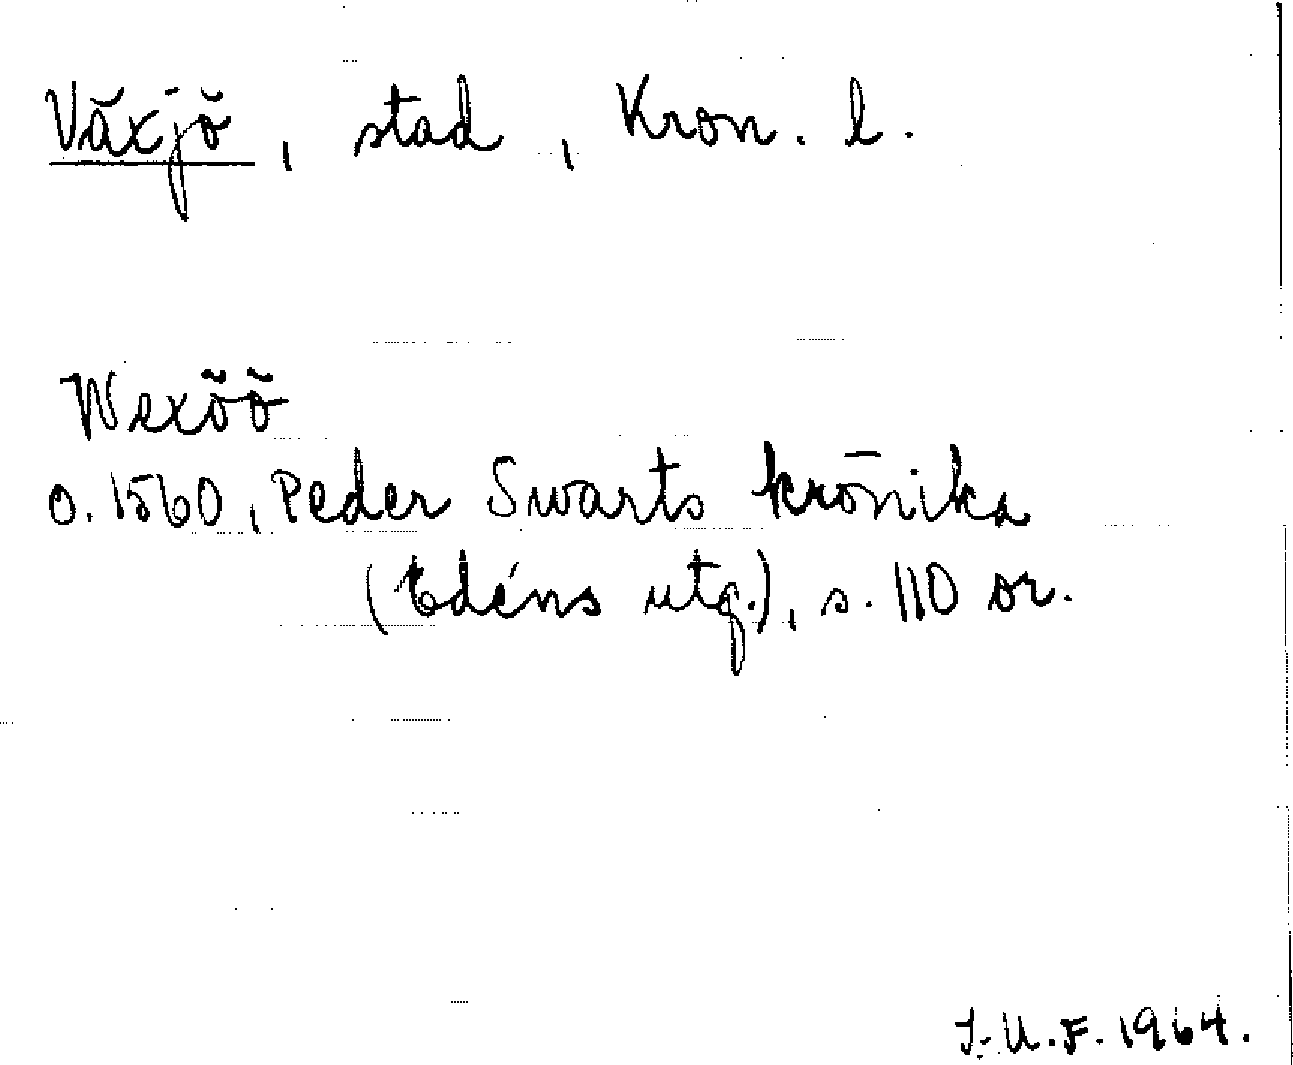 Växjö, stad, Kron. l.
Wexöö
o. 1560, Peder Swarts krönika
(Edéns utg.), s. 110 or.
I. U. F. 1964.